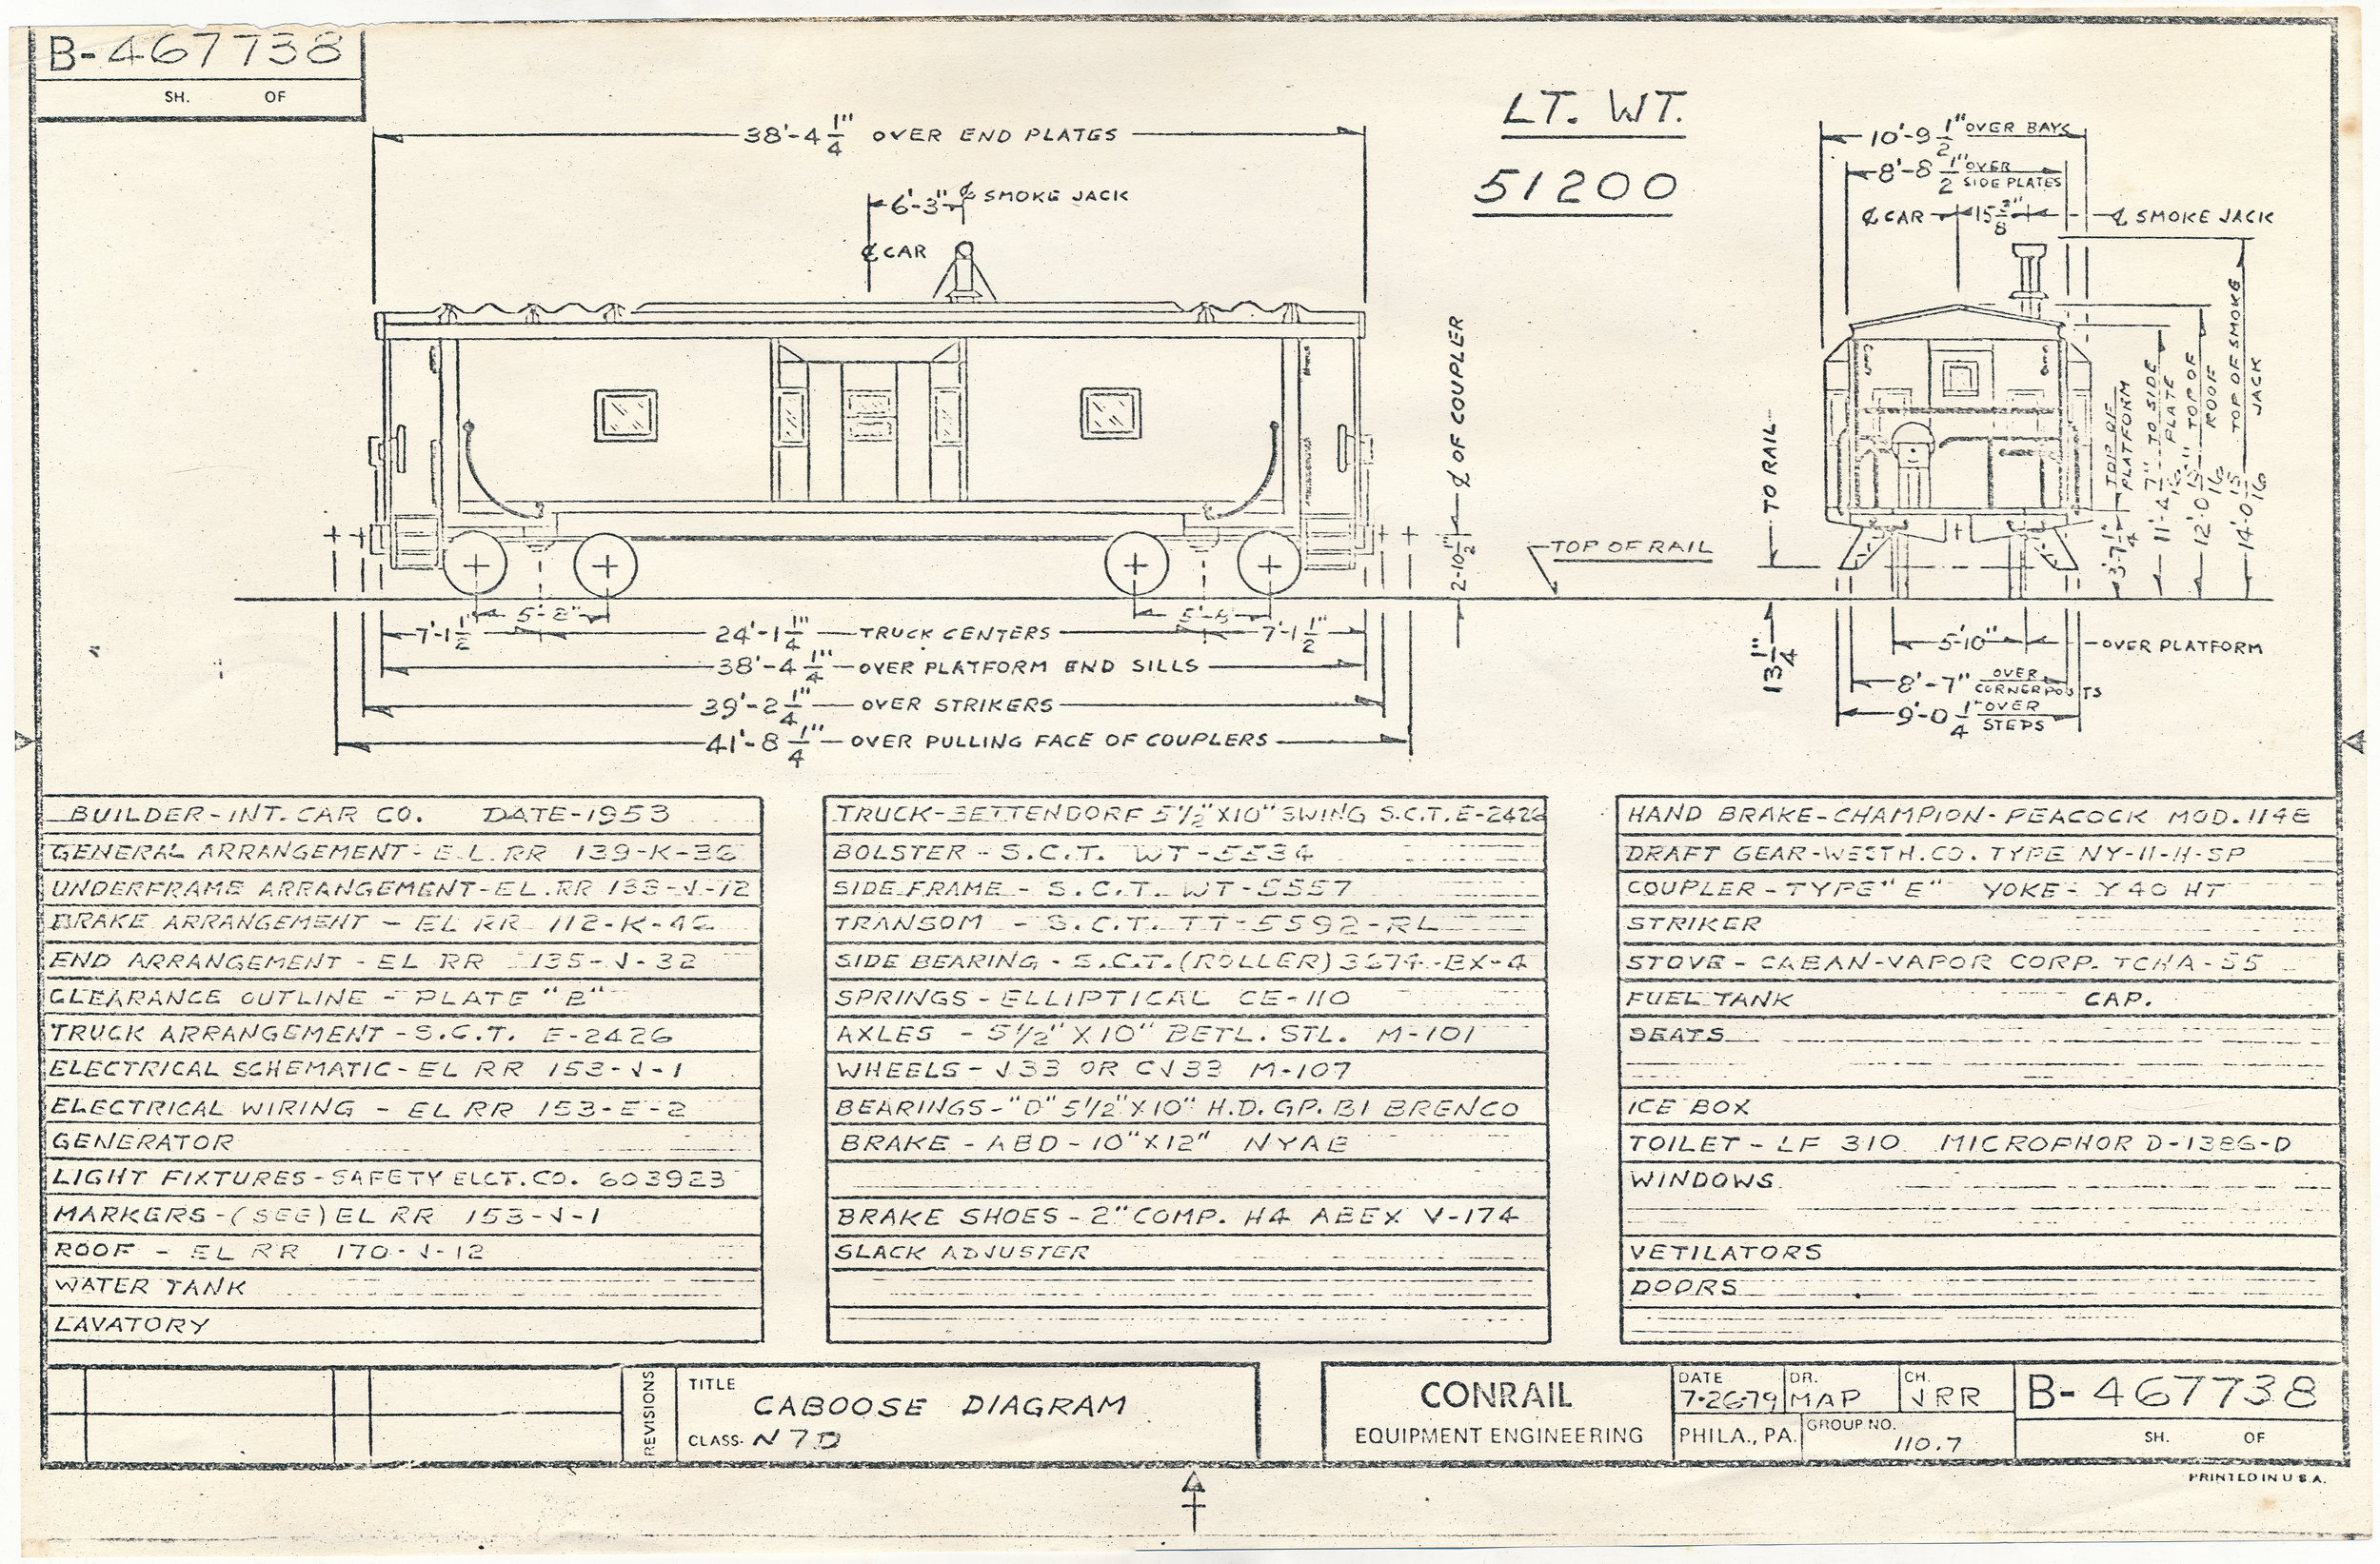 B-467738
SH. OF
LT. WT.
51200
38'-4 1/4" OVER END PLATES
6'-3" ℄ SMOKE JACK
℄ CAR
10'-9 1/2" OVER BAYS
8'-8 1/2" OVER SIDE PLATES
℄ CAR 15 3/8" ℄ SMOKE JACK
2'-10 1/2" ℄ OF COUPLER
TOP OF RAIL
13 1/4" TO RAIL
3'-7 1/4" TOP OF PLATFORM
11'-4 7/16" TO SIDE PLATE
12'-0 15/16" TOP OF ROOF
14'-0 15/16 TOP OF SMOKE JACK
5'-8" 5'-8"
7'-1 1/2" 24'-1 1/4" TRUCK CENTERS 7'-1 1/2"
38'-4 1/4" OVER PLATFORM END SILLS
39'-2 1/4" OVER STRIKERS
41'-8 1/4" OVER PULLING FACE OF COUPLERS
5'-10" OVER PLATFORM
8'-7" OVER CORNERPOSTS
9'-0 1/4" OVER STEPS
BUILDER-INT. CAR CO. DATE-1953
GENERAL ARRANGEMENT - E.L. RR 139-K-36
UNDERFRAME ARRANGEMENT-EL.RR 133-J-72
BRAKE ARRANGEMENT - EL RR 112-K-46
END ARRANGEMENT - EL RR 135-J-32
CLEARANCE OUTLINE - PLATE "B"
TRUCK ARRANGEMENT - S.C.T. E-2426
ELECTRICAL SCHEMATIC-EL RR 153-J-1
ELECTRICAL WIRING - EL RR 153-E-2
GENERATOR
LIGHT FIXTURES-SAFETY ELCT. CO. 603923
MARKERS-(SEE) EL RR 153-J-1
ROOF - EL RR 170-J-12
WATER TANK
LAVATORY
TRUCK-BETTENDORF 5 1/2" X10" SWING S.C.T. E-2426
BOLSTER - S.C.T. WT-5534
SIDE FRAME - S.C.T. WT-5557
TRANSOM - S.C.T. TT-5592-RL
SIDE BEARING - S.C.T. (ROLLER) 3674-BX-4
SPRINGS - ELLIPTICAL CE-110
AXLES - 5 1/2" X 10" BETL. STL. M-101
WHEELS - J33 OR CJ33 M-107
BEARINGS-"D" 5 1/2" X 10" H.D. GP. B1 BRENCO
BRAKE - ABD - 10"X12" NYAB
BRAKE SHOES - 2" COMP. H4 ABEX V-174
SLACK ADJUSTER
HAND BRAKE-CHAMPION-PEACOCK MOD. 1148
DRAFT GEAR-WESTH.CO. TYPE NY-11-H-SP
COUPLER - TYPE "E" YOKE - Y40 HT
STRIKER
STOVE - CABAN-VAPOR CORP. TCHA-55
FUEL TANK CAP.
SEATS
ICE BOX
TOILET - LF 310 MICROPHOR D-1386-D
WINDOWS
VETILATORS
DOORS
REVISIONS
TITLE CABOOSE DIAGRAM
CLASS- N7D
CONRAIL
EQUIPMENT ENGINEERING
DATE 7-26-79 DR. MAP CH. JRR
PHILA., PA. GROUP NO. 110.7
B-467738
SH. OF
PRINTED IN U.S.A.